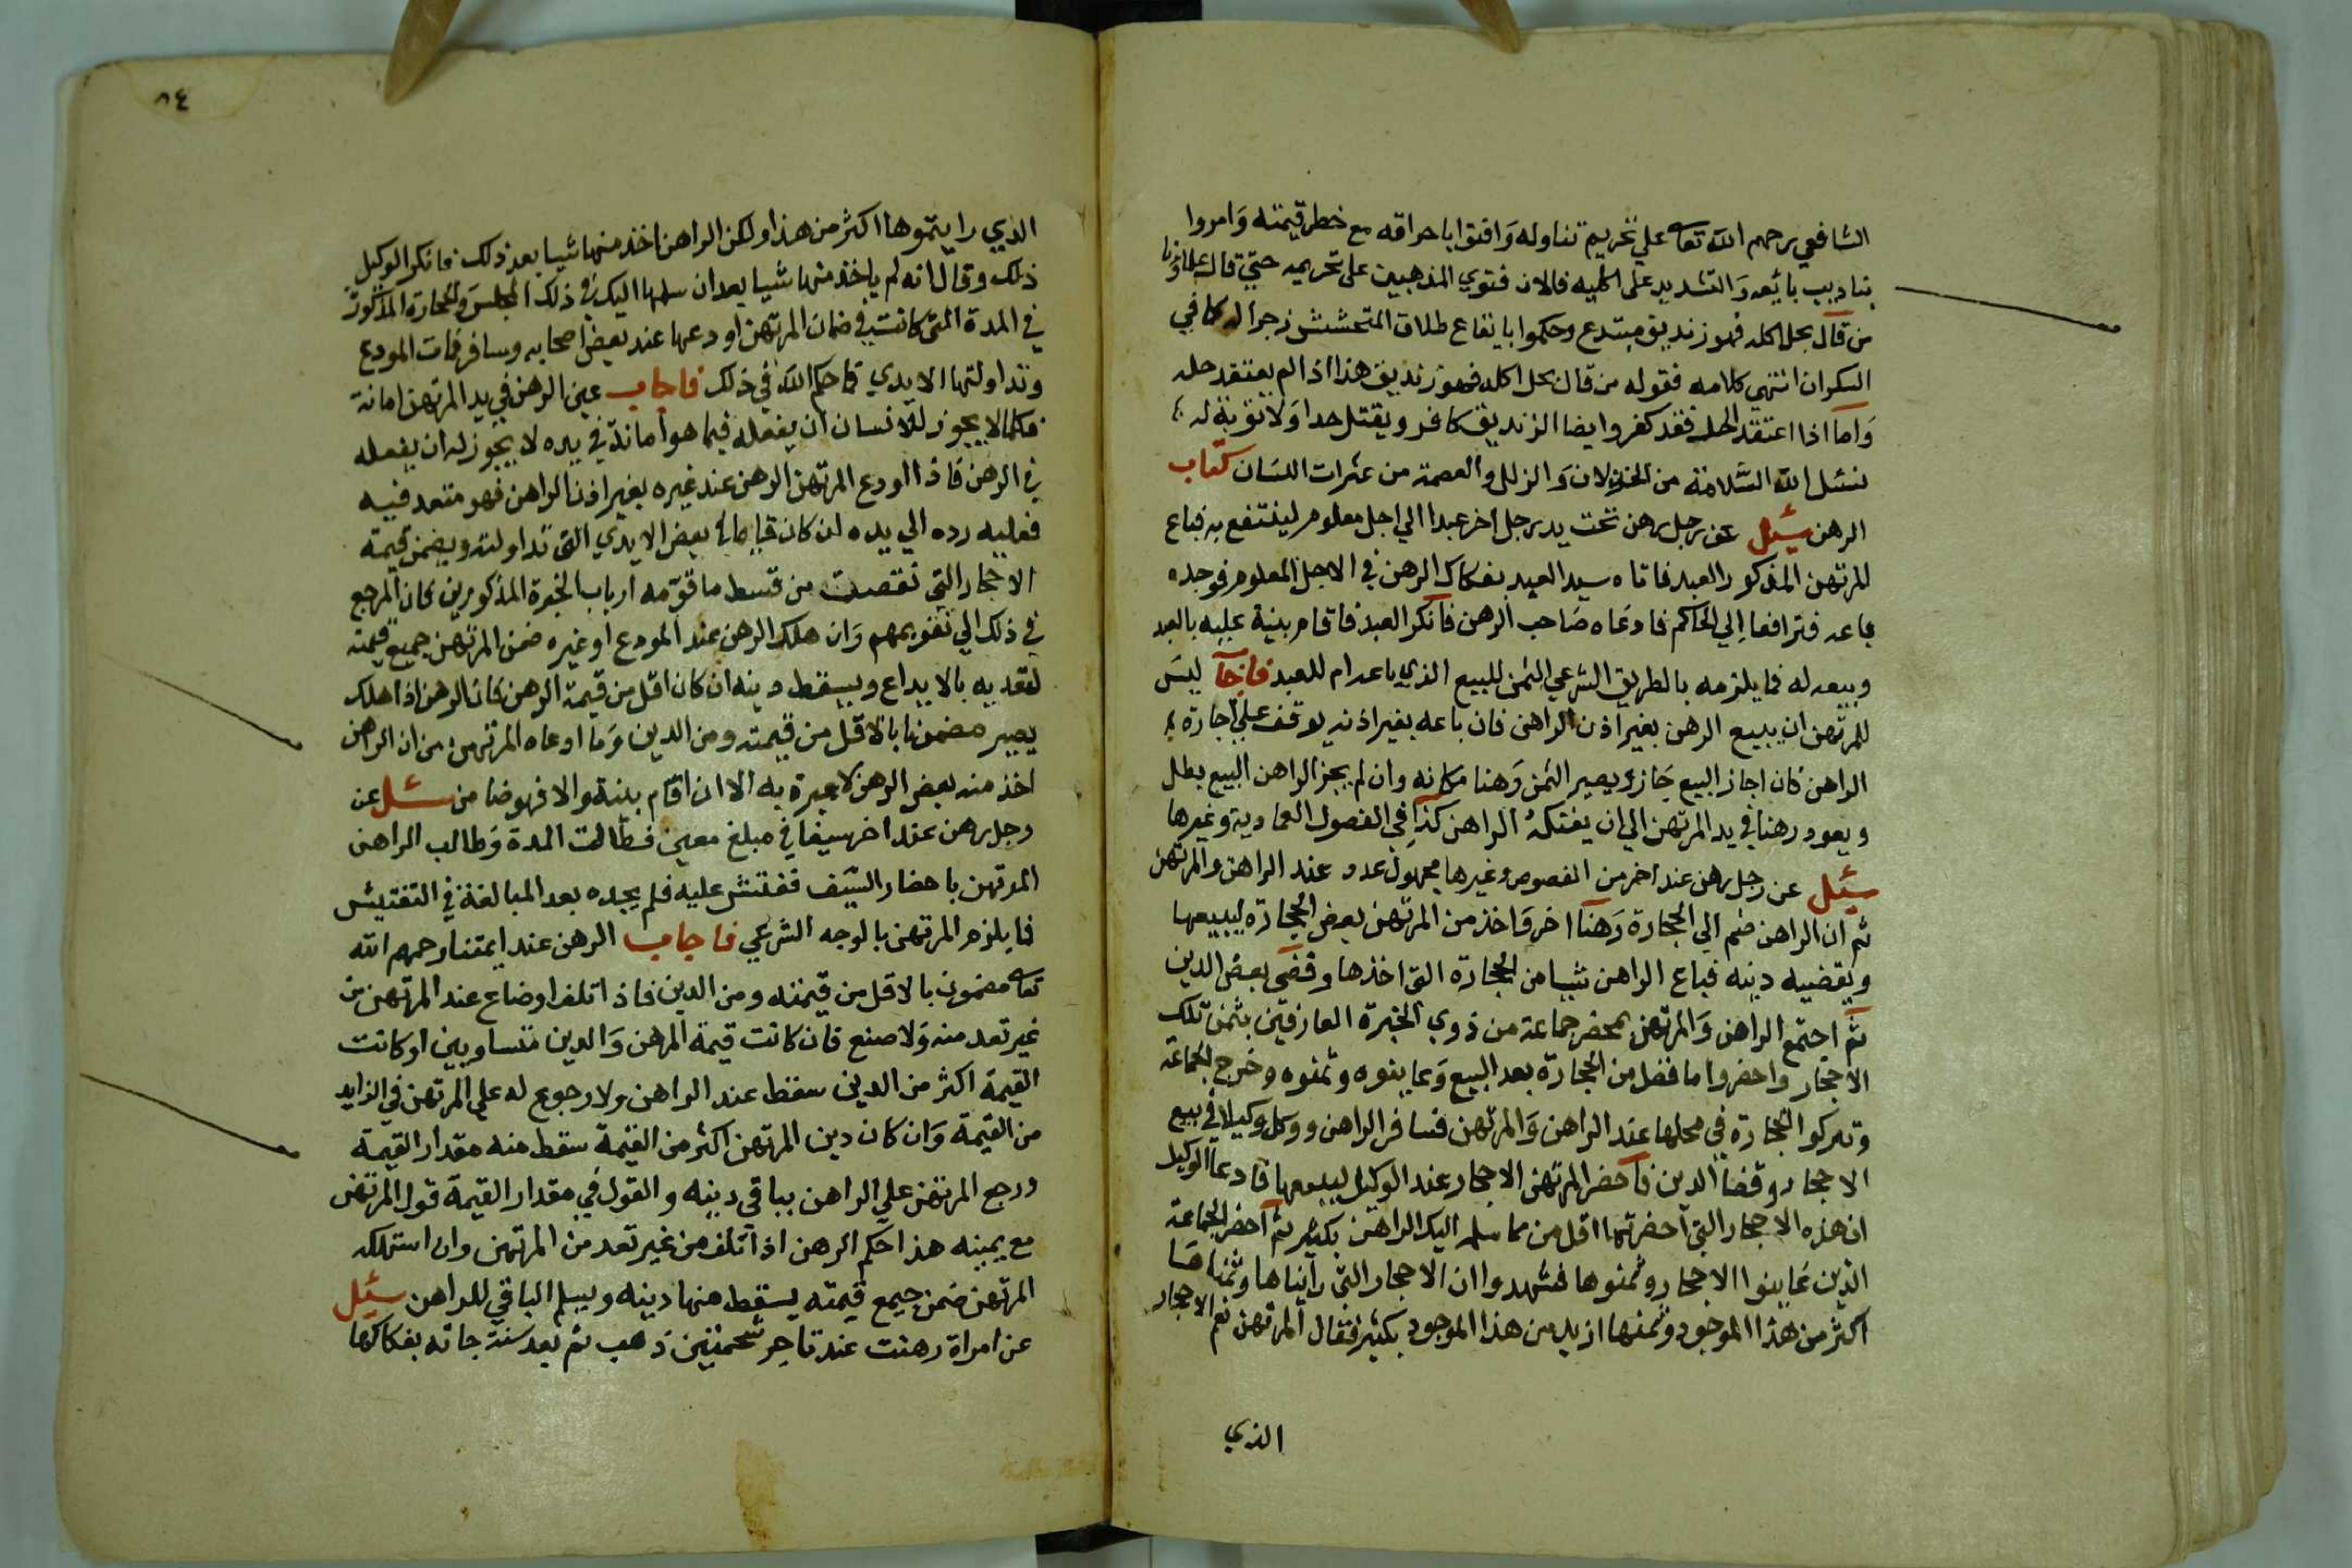 الشافعي رحمهم الله تعالى علي تحريم تناوله وافتوا باحراقه مع خطر قيمته وامروا
بتاديب بائعه والتشديد على اكليه فالان فتوي المذهبين على تحريمه حتي قال علماؤنا
من قال بحل اكله فهو زنديق مبتدع وحكموا بايقاع طلاق المتحشش زجرا له كما في
السكران انتهي كلامه فقوله من قال بحل اكله فهو زنديق هذا اذا لم يعتقد حله
واما اذا اعتقد الحل فقد كفر وايضا الزنديق كافر ويقتل حدا ولا توبة له
نسئل الله السلامة من الخذلان والزلل والعصمة من عثرات اللسان كتاب
الرهن سئل عن رجل رهن تحت يد رجل اخر عبدا الي اجل معلوم لينتفع به فباع
المرتهن المذكور العبد فاتاه سيد العبد بفكاك الرهن في الاجل المعلوم فوجده
باعه فترافعا الي الحاكم فادعاه صاحب الرهن فانكر العبد فاقام بينة عليه بالعبد
وبيعه له فما يلزمه بالطريق الشرعي الثمن للبيع الذي باعه ام للعبد فاجاب ليس
للمرتهن ان يبيع الرهن بغير اذن الراهن فان باعه بغير اذنه يوقف علي اجازة
الراهن فان اجاز البيع جاز ويصير الثمن رهنا مكانه وان لم يجز الراهن البيع بطل
ويعود رهنا في يد المرتهن الي ان يفتكه الراهن كذا في الفصول العمادية وغيرها
سئل عن رجل رهن عند اخر من الفصوص وغيرها مجهول عدد عند الراهن والمرتهن
ثم ان الراهن ضم الي الحجارة رهنا اخر واخذ من المرتهن بعض الحجارة ليبيعها
ويقضيه دينه فباع الراهن شيا من الحجارة التي اخذها وقضي بعض الدين
ثم اجتمع الراهن والمرتهن بمحضر جماعة من ذوي الخبرة العارفين بثمن تلك
الاحجار واحضروا ما فضل من الحجارة بعد البيع وعاينوه وثمنوه وخرج الجماعة
وتركوا الحجارة في محلها عند الراهن والمرتهن فسافر الراهن ووكل وكيلا في بيع
الاحجار وقضا الدين فاحضر المرتهن الاحجار عند الوكيل ليبيعها فادعا الوكيل
ان هذه الاحجار التي احضرتها اقل من مما سلمه اليك الراهن بكثير ثم احضر الجماعة
الذين عاينوا الاحجار وثمنوها فشهدوا ان الاحجار التي رايناها وثمناها
اكثر من هذا الموجود وثمنها ازيد من هذا الموجود بكثير فقال المرتهن نعم الاحجار
الذي
٨٤
الذي رايتموها اكثر من هذا ولكن الراهن اخذ منها شيا بعد ذلك فانكر الوكيل
ذلك وقال انه لم ياخذ منها شيا بعد ان سلمها اليك في ذلك المجلس والحجارة المذكورة
في المدة التي كانت في ضمان المرتهن اودعها عند بعض اصحابه وسافر فمات المودع
وتداولتها الايدي فما حكم الله في ذلك فاجاب عين الرهن في يد المرتهن امانة
فكما لا يجوز للانسان ان يفعله فيما هو امانة في يده لا يجوز له ان يفعله
في الرهن فاذا اودع المرتهن الرهن عند غيره بغير اذن الراهن فهو متعد فيه
فعليه رده الي يده ان كان قايما في بعض الايدي التي تداولته ويضمن قيمة
الاحجار التي نقصت من قسط ما قومه ارباب الخبرة المذكورين فان المرجع
في ذلك الي تقويمهم وان هلك الرهن عند المودع او غيره ضمن المرتهن جميع قيمته
لتعديه بالايداع ويسقط دينه ان كان اقل من قيمة الرهن فان الرهن اذا هلك
يصير مضمونا بالاقل من قيمته ومن الدين وما ادعاه المرتهن من ان الراهن
اخذ منه بعض الرهن لا عبرة به الا ان اقام بينة والا فهو ضامن سئل عن
رجل رهن عند اخر سيفا في مبلغ معين فطالت المدة وطالب الراهن
المرتهن باحضار السيف ففتش عليه فلم يجده بعد المبالغة في التفتيش
فما يلزم المرتهن بالوجه الشرعي فاجاب الرهن عند ايمتنا رحمهم الله
تعالى مضمون بالاقل من قيمته ومن الدين فاذا تلف او ضاع عند المرتهن من
غير تعد منه ولا صنع فان كانت قيمة الرهن والدين متساويين او كانت
القيمة اكثر من الدين سقط عند الراهن ولا رجوع له علي المرتهن في الزايد
من القيمة وان كان دين المرتهن اكثر من القيمة سقط منه مقدار القيمة
ورجع المرتهن علي الراهن بباقي دينه والقول في مقدار القيمة قول المرتهن
مع يمينه هذا حكم الرهن اذا تلف من غير تعد من المرتهن وان استهلكه
المرتهن ضمن جميع قيمته يسقط منها دينه ويسلم الباقي للراهن سئل
عن امراة رهنت عند تاجر ذهب ثم بعد سنة جاته بفكاكها